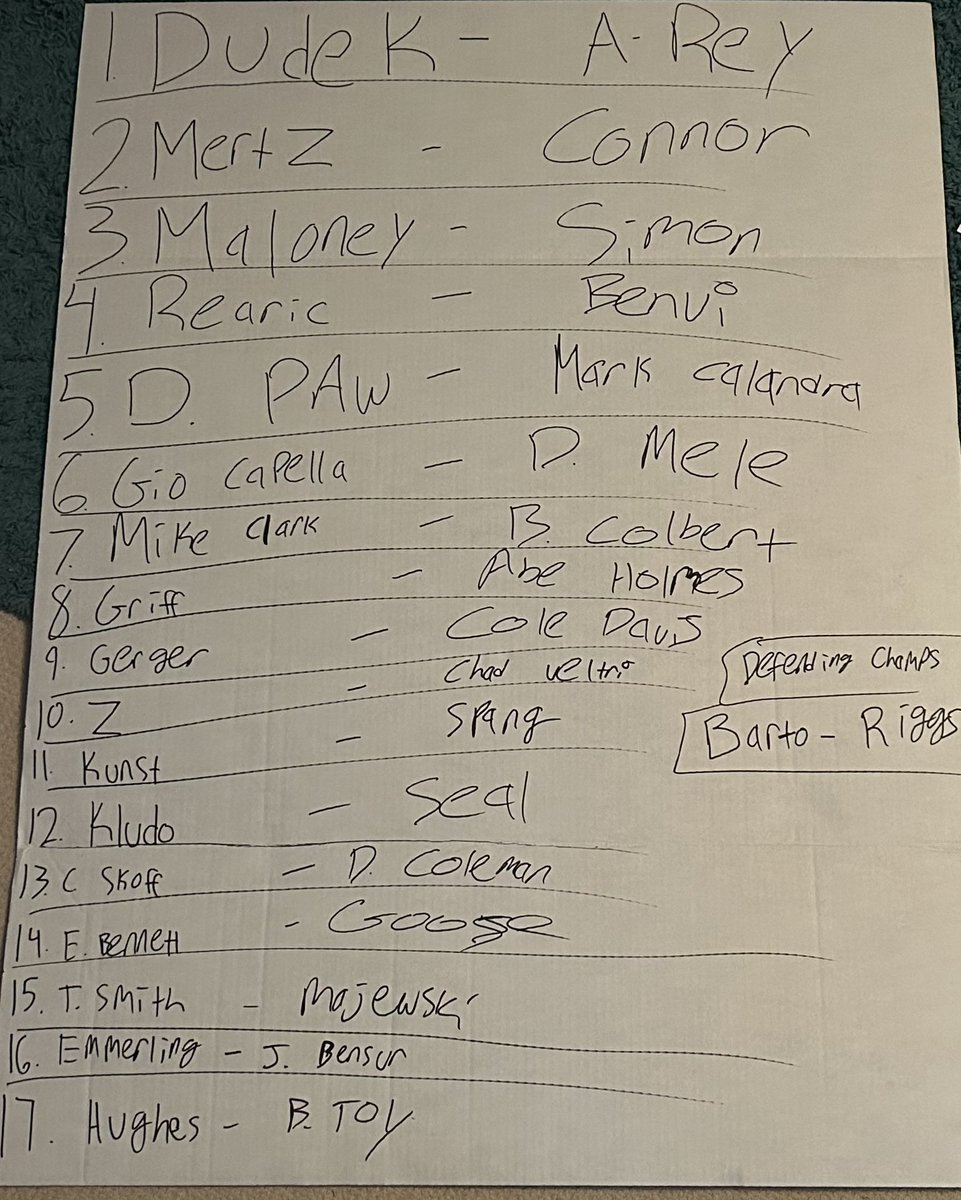 1. Dudek - A-Rey
2. Mertz - Connor
3. Maloney - Simon
4. Rearic - Benvi
5. D. PAW - Mark Calandra
6. Gio Capella - D. Mele
7. Mike Clark - B. Colbert
8. Griff - Abe Holmes
9. Gerger - Cole Davis
10. Z - Chad Veltri
11. Kunst - Spang
12. Kludo - Seal
13. C Skoff - D. Coleman
14. E. Bennett - Goose
15. T. Smith - Majewski
16. Emmerling - J. Bensur
17. Hughes - B. Toy
Defending Champs
Barto - Riggs